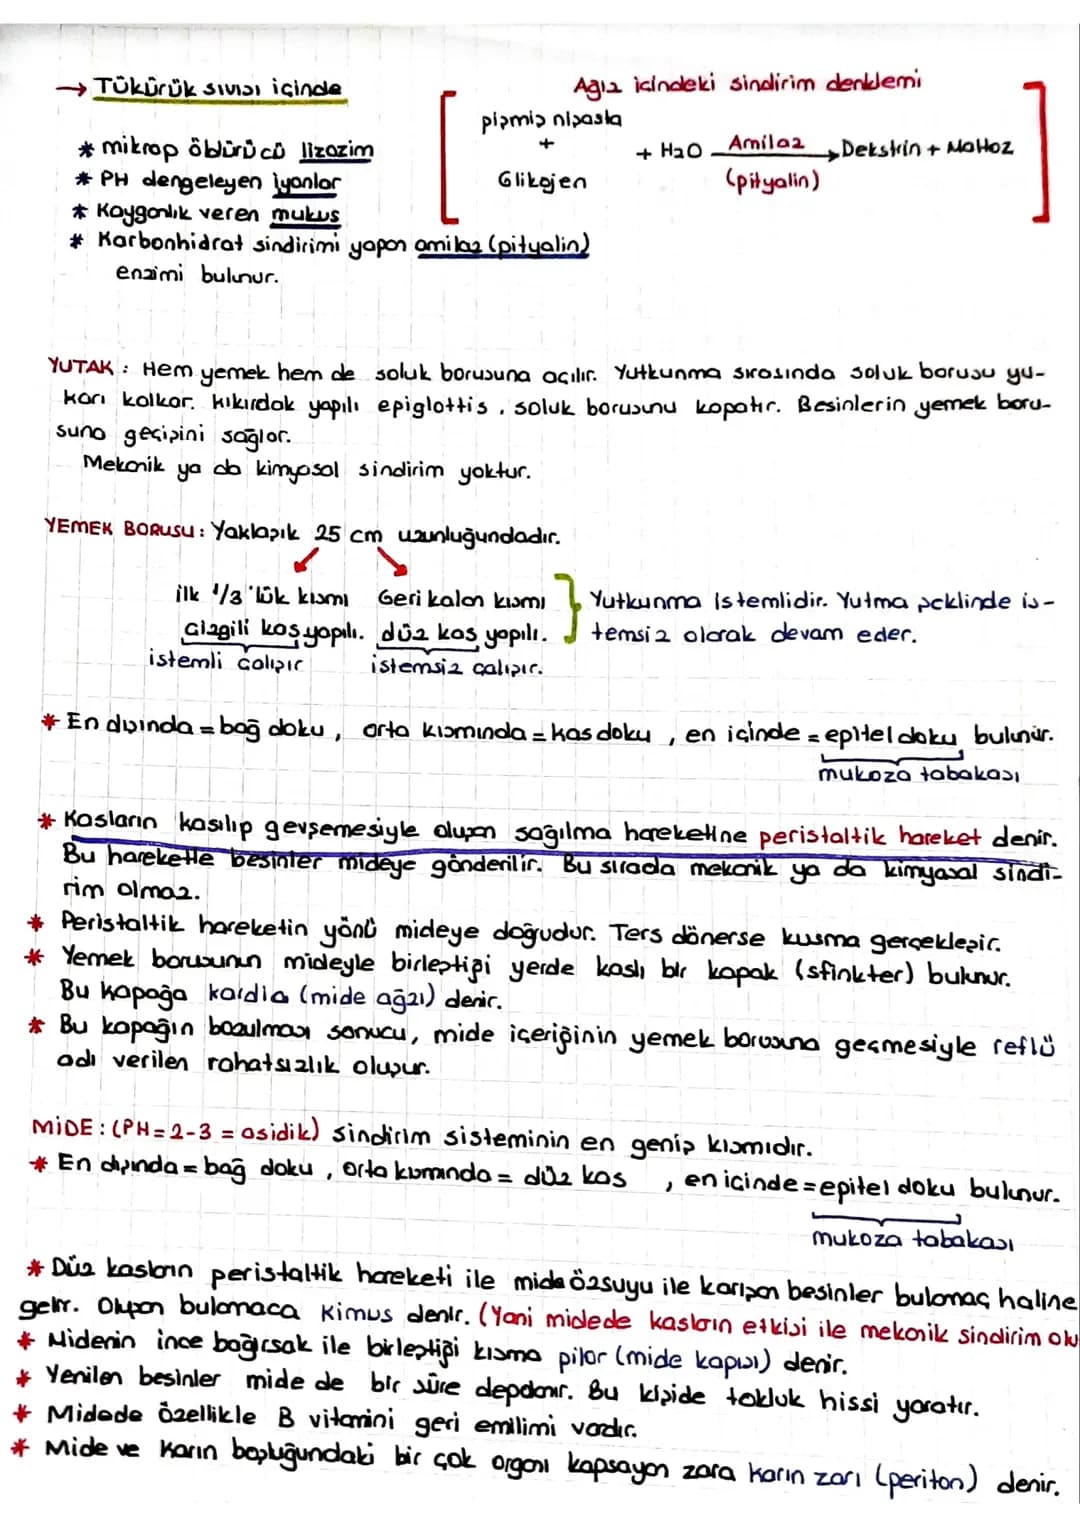 → Tükürük sıvısı içinde
* mikrop öldürücü lizozim
* PH dengeleyen iyonlar
* Kayganlık veren mukus
* Karbonhidrat sindirimi yapan amilaz (pityalin)
enzimi bulunur.
Ağız içindeki sindirim denklemi
pişmiş nişasta
+
Glikojen
+ H2O Amilaz → Dekstrin + Maltoz
(pityalin)
YUTAK : Hem yemek hem de soluk borusuna açılır. Yutkunma sırasında soluk borusu yu-
karı kalkar. kıkırdak yapılı epiglottis, soluk borusunu kapatır. Besinlerin yemek boru-
suna geçişini sağlar.
Mekanik ya da kimyasal sindirim yoktur.
YEMEK BORUSU : Yaklaşık 25 cm uzunluğundadır.
ilk 1/3 'lük kısmı
çizgili kas yapılı.
istemli çalışır
Geri kalan kısmı
düz kas yapılı.
istemsiz çalışır.
} Yutkunma istemlidir. Yutma şeklinde is-
temsiz olarak devam eder.
* En dışında = bağ doku, orta kısmında = kas doku, en içinde = epitel doku bulunur.
mukoza tabakası
* Kasların kasılıp gevşemesiyle oluşan sağılma hareketine peristaltik hareket denir.
Bu hareketle besinler mideye gönderilir. Bu sırada mekanik ya da kimyasal sindi-
rim olmaz.
* Peristaltik hareketin yönü mideye doğudur. Ters dönerse kusma gerçekleşir.
* Yemek borusunun mideyle birleştiği yerde kaslı bir kapak (sfinkter) bulunur.
Bu kapağa kardia (mide ağzı) denir.
* Bu kapağın bozulması sonucu, mide içeriğinin yemek borusuna geçmesiyle reflü
adı verilen rahatsızlık oluşur.
MİDE : (PH = 2-3 = asidik) sindirim sisteminin en geniş kısmıdır.
* En dışında = bağ doku, orta kısmında = düz kas , en içinde = epitel doku bulunur.
mukoza tabakası
* Düz kasların peristaltik hareketi ile mide özsuyu ile karışan besinler bulamaç haline
gelir. Oluşan bulamaca kimus denir. (Yani midede kasların etkisi ile mekanik sindirim olu
* Midenin ince bağırsak ile birleştiği kısma pilor (mide kapısı) denir.
* Yenilen besinler mide de bir süre depolanır. Bu kişide tokluk hissi yaratır.
* Midede özellikle B vitamini geri emilimi vardır.
* Mide ve Karın boşluğundaki bir çok organı kapsayan zara karın zarı (periton) denir.